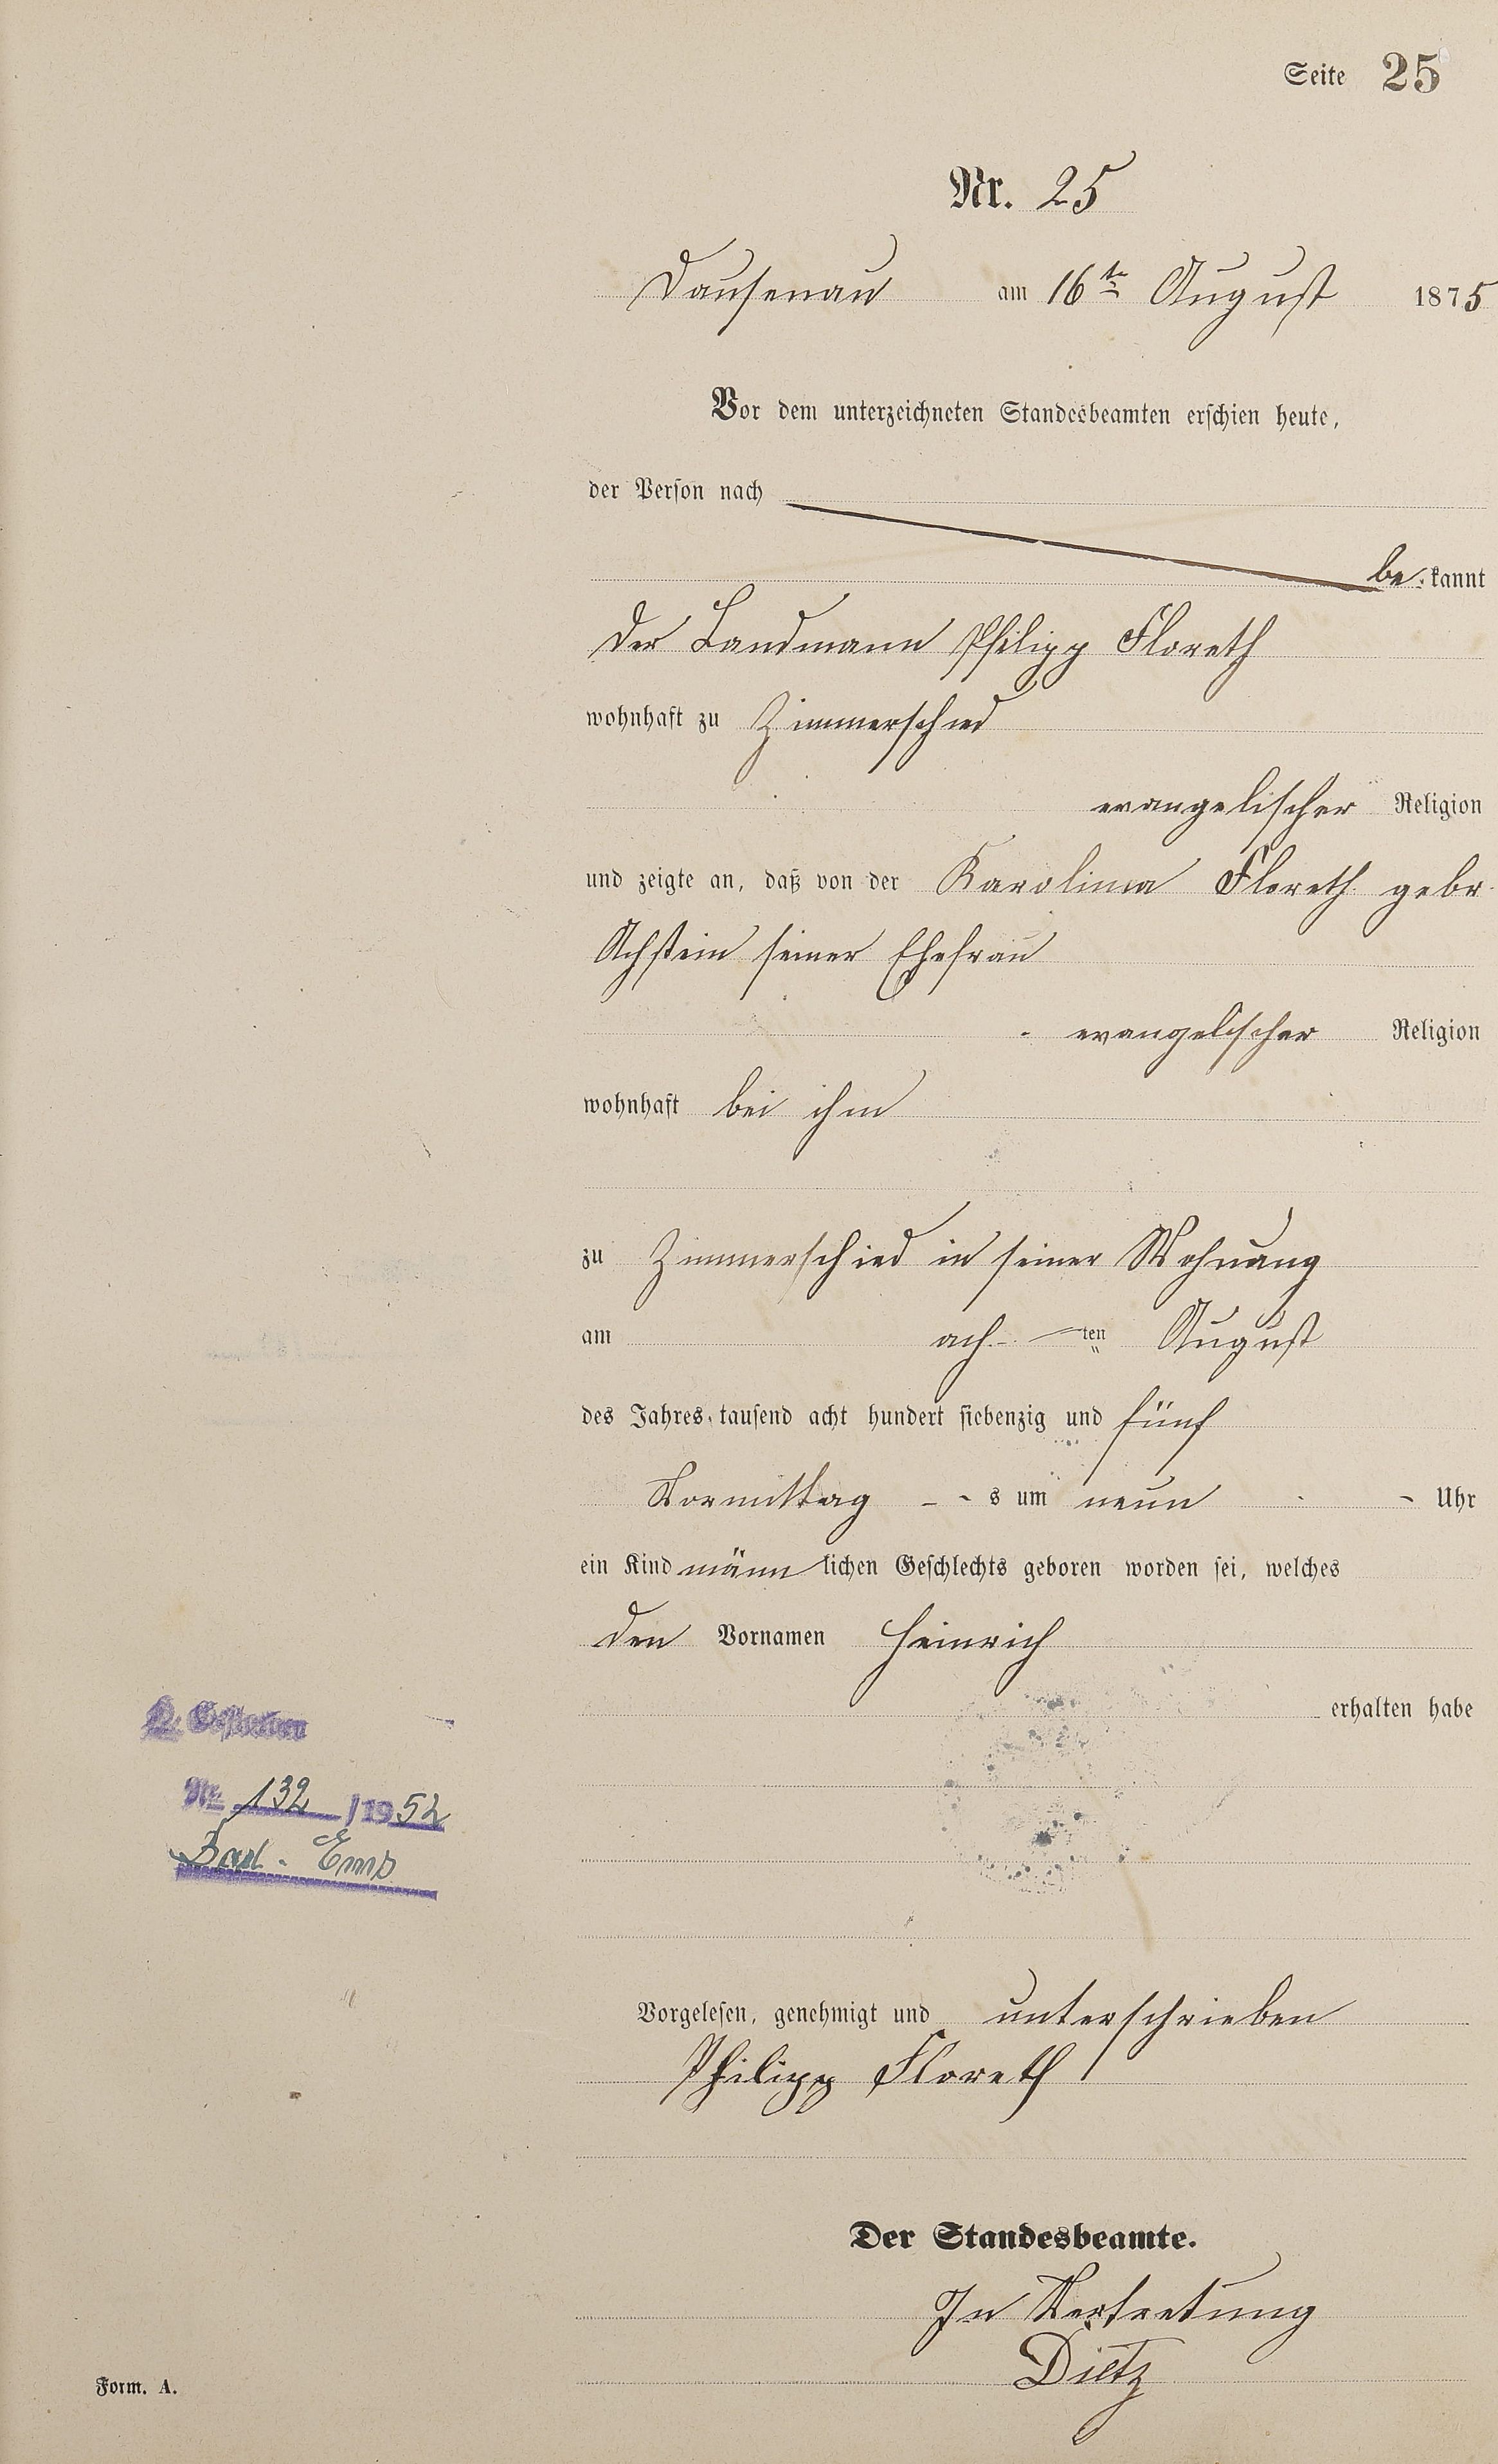 Seite 25
Nr. 25
Dausenau am 16te August 1875
Vor dem unterzeichneten Standesbeamten erschien heute,
der Person nach
be kannt
der Landmann Philipp Floreth
wohnhaft zu Zimmerschied
evangelischer Religion
und zeigte an, daß von der Karolina Floreth gebr
Achstein seiner Ehefrau
evangelischer Religion
wohnhaft bei ihm
zu Zimmerschied in seiner Wohnung
am ach ten August
des Jahres tausend acht hundert siebenzig und fünf
Vormittag s um neun Uhr
ein Kind männ lichen Geschlechts geboren worden sei, welches
den Vornamen Heinrich
erhalten habe
Gestorben
Nr. 132 / 1952
Bad-Ems
Vorgelesen, genehmigt und unterschrieben
Philipp Floreth
Der Standesbeamte.
In Vertretung
Dietz
Form. A.